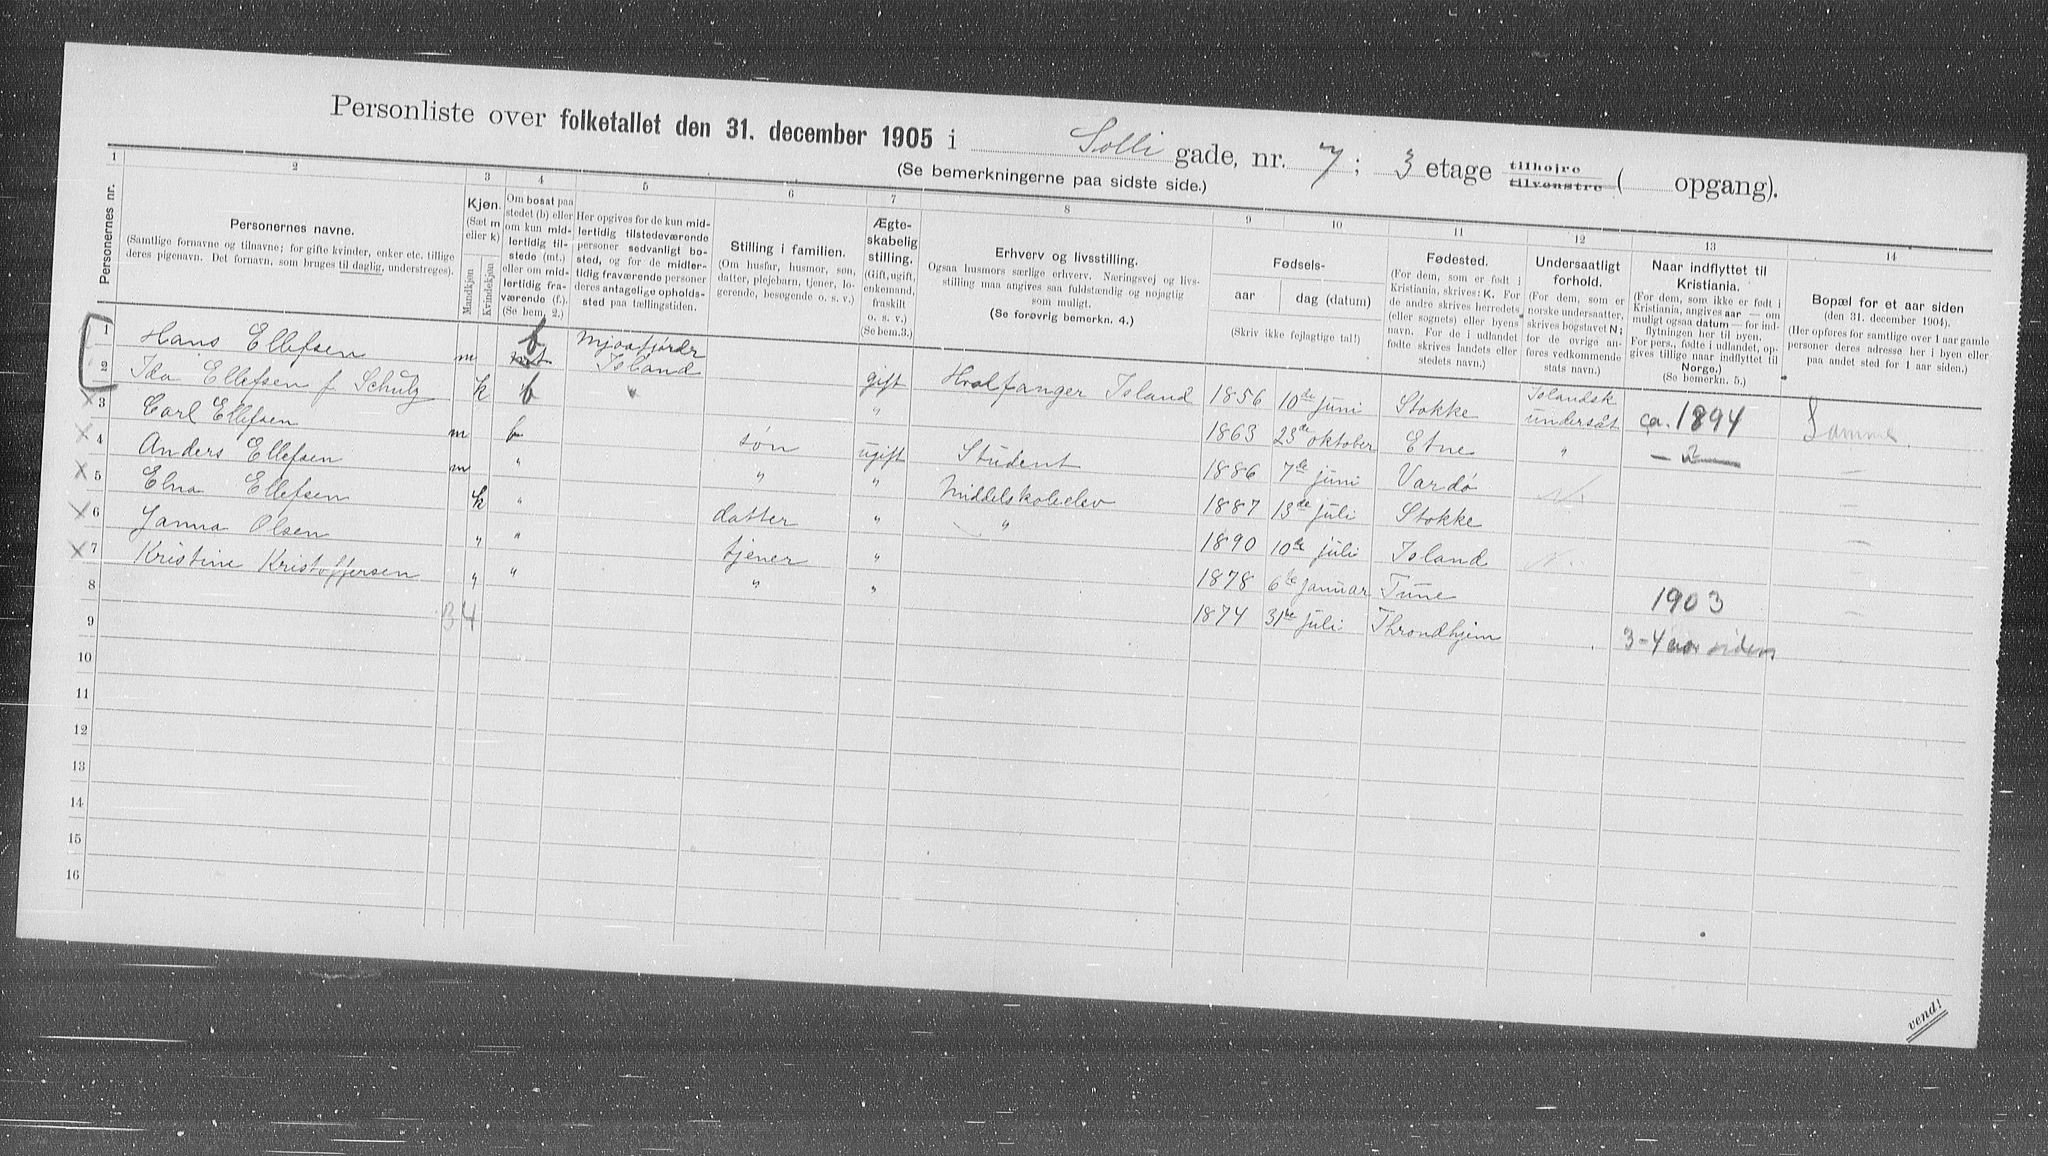 Personliste over folketallet den 31. december 1905 i Solli gade, nr. 7; 3 etage tilhøjre tilvenstre ( opgang).
(Se bemerkningerne paa sidste side.)
1 2 3 4 5 6 7 8 9 10 11 12 13 14
Personernes nr.
Personernes navne.
(Samtlige fornavne og tilnavne; for gifte kvinder, enker etc. tillige
deres pigenavn. Det fornavn, som bruges til daglig, understreges).
Kjøn.
(Sæt m
eller k)
Mandkjøn
Kvindekjøn
Om bosat paa
stedet (b) eller
om kun mid-
lertidig til-
stede (mt.)
eller om mid-
lertidig fra-
værende (f.).
(Se bem. 2.)
Her opgives for de kun mid-
lertidig tilstedeværende
personer sedvanligt bo-
sted, og for de midler-
tidig fraværende personer
deres antagelige opholds-
sted paa tællingstiden.
Stilling i familien.
(Om husfar, husmor, søn,
datter, plejebarn, tjener, lo-
gerende, besøgende o. s. v.)
Ægte-
skabelig
stilling.
(Gift, ugift,
enkemand,
fraskilt
o. s. v.)
(Se bem.3.)
Erhverv og livsstilling.
Ogsaa husmors særlige erhverv. Næringsvej og livs-
stilling maa angives saa fuldstændig og nøjagtig
som muligt.
(Se forøvrig bemerkn. 4.)
Fødsels-
aar dag (datum)
(Skriv ikke fejlagtige tal!)
Fødested.
(For dem, som er født i
Kristiania, skrives: K. For
de andre skrives herredets
(eller sognets) eller byens
navn. For de i udlandet
fødte skrives landets eller
stedets navn.)
Undersaatligt
forhold.
(For dem, som er
norske undersaatter,
skrives bogstavet N;
for de øvrige an-
føres vedkommende
stats navn.)
Naar indflyttet til
Kristiania.
(For dem, som ikke er født i
Kristiania, angives aar — om
muligt ogsaa datum — for ind-
flytningen her til byen.
For pers., fødte i udlandet, op-
gives tillige naar indflyttet til
Norge.)
(Se bemerkn. 5.)
Bopæl for et aar siden
(den 31. december 1904.)
(Her opføres for samtlige over 1 aar gamle
personer deres adresse her i byen eller
paa andet sted for 1 aar siden.)
1 Hans Ellefsen m mt b Mjoafjördr Island gift Hvalfanger Island 1856 10de juni Stokke Islandsk undersåt ca. 1894 Samme
2 Ida Ellefsen f Schulz k b " " 1863 23de oktober Etne " - 2 - —
3 Carl Ellefsen m b søn ugift Student 1886 7de juni Vardö N. —
4 Anders Ellefsen m " " " Middelskoleelev 1887 13de juli Stokke —
5 Elna Ellefsen k " datter " " 1890 10de juli Island N. —
6 Janna Olsen " " tjener " 1878 6te januar Tune 1903 —
7 Kristine Kristoffersen " " " " 1874 31te juli Throndhjem 3-4 aar siden
8
34
9
10
11
12
13
14
15
16
vend!